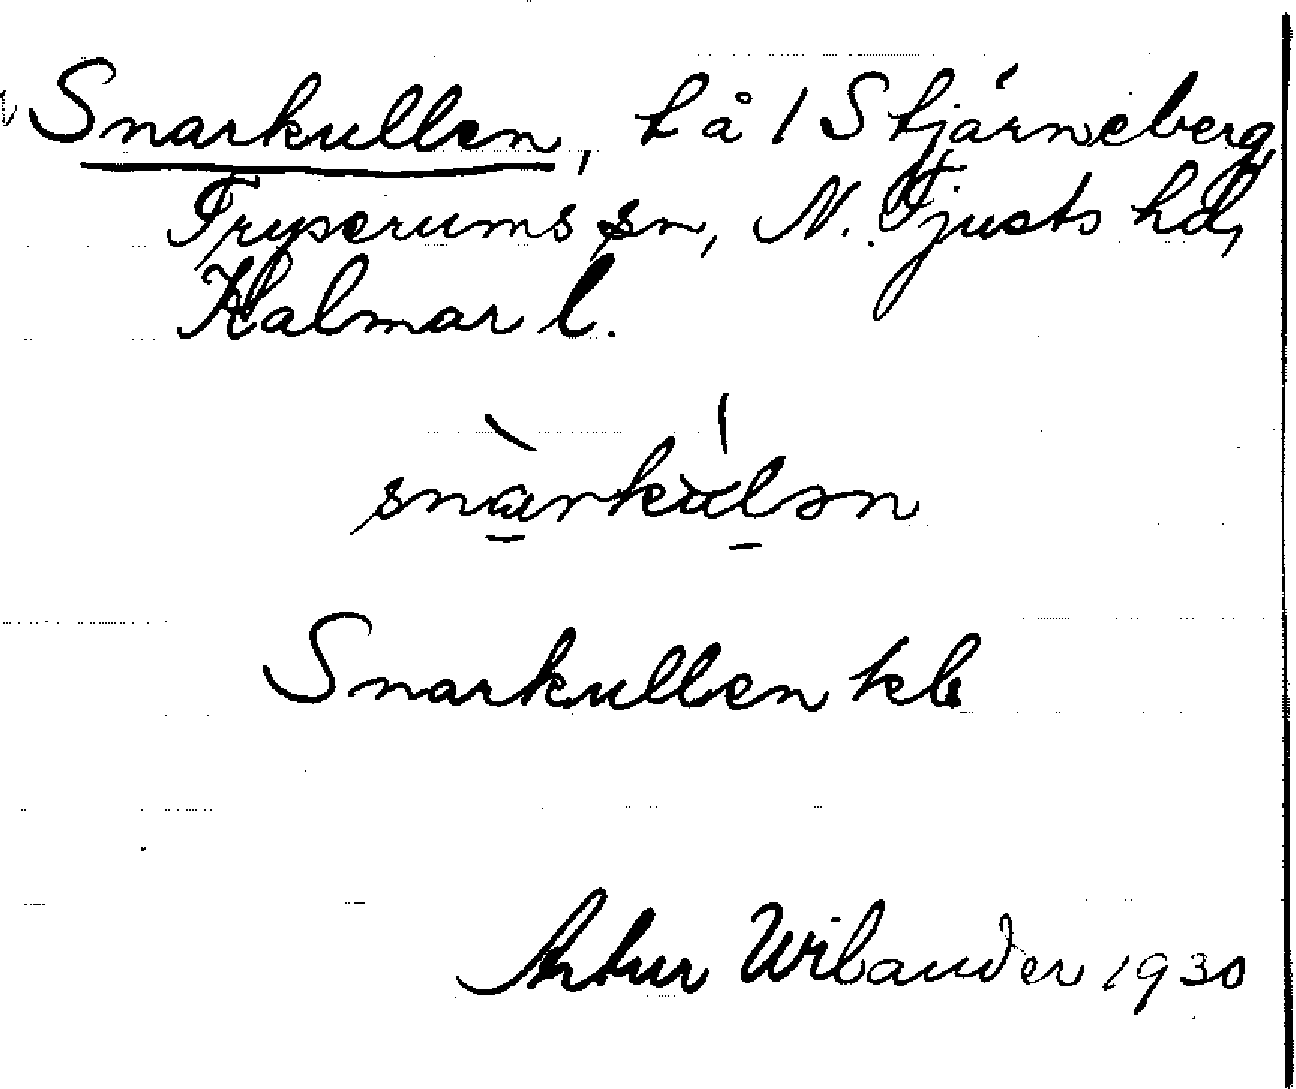 Snarkullen, hå 1 Stjärneberg,
Tryserums sn, N. Tjusts hd,
Kalmar l.
snàrkúlən
Snarkullen kb
Artur Wilander 1930